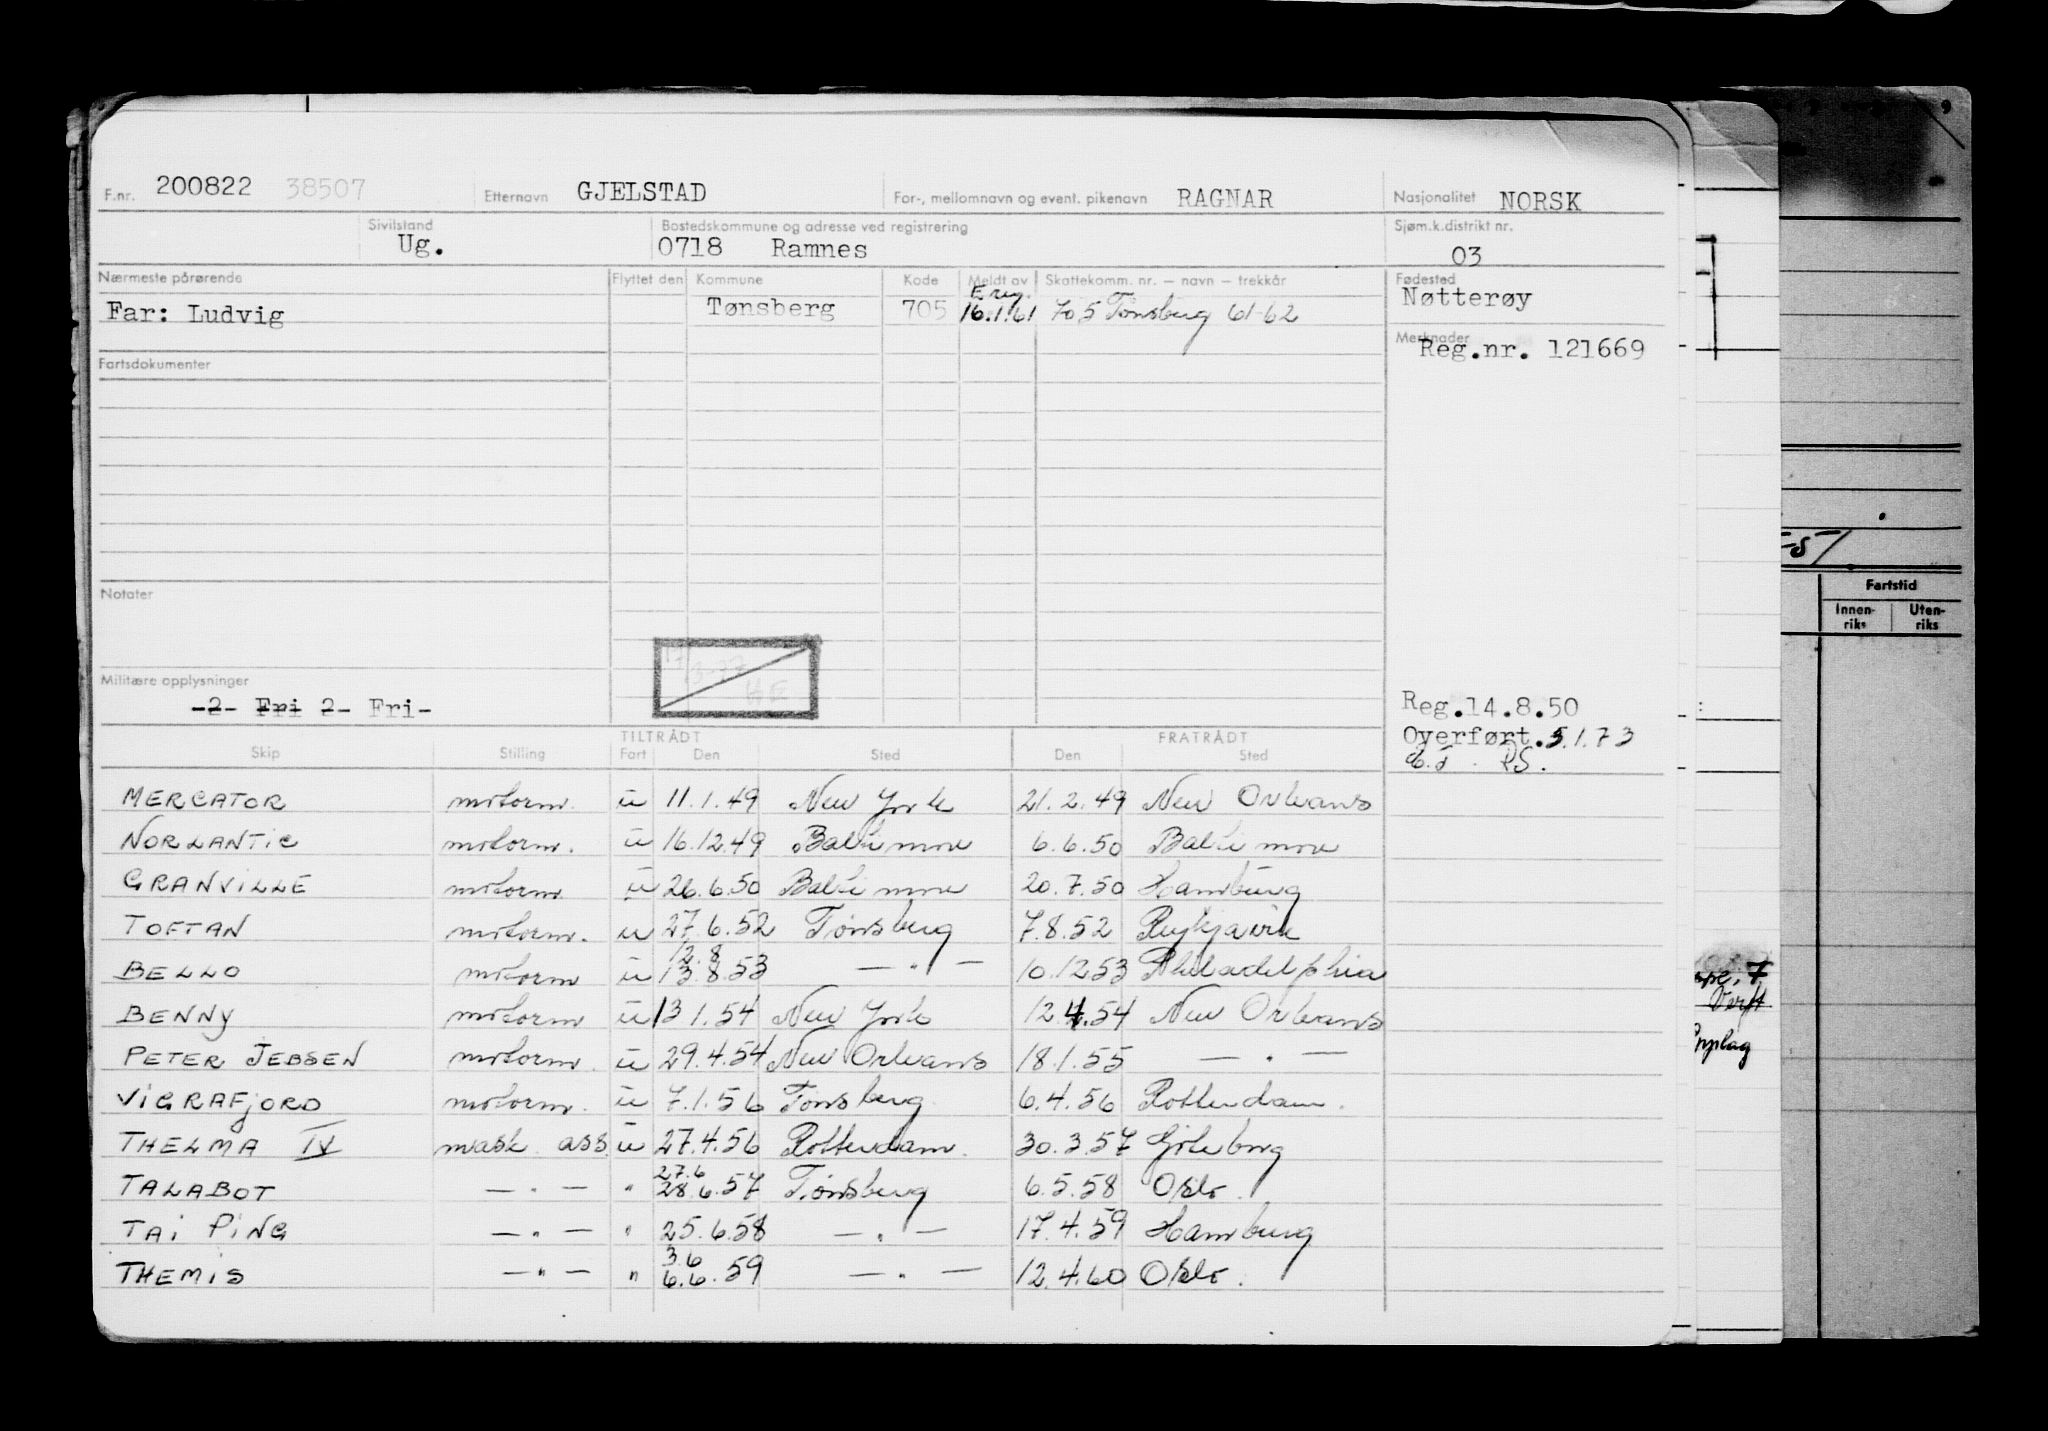 F.nr. 200822 38507 Etternavn GJELSTAD For-, mellomnavn og event. pikenavn RAGNAR Nasjonalitet NORSK
Sivilstand Ug. Bostedskommune og adresse ved registrering 0718 Ramnes Sjøm.k.distrikt nr. 03
Nærmeste pårørende Flyttet den Kommune Kode Meldt av Skattekomm. nr. — navn — trekkår Fødested
Far: Ludvig Tønsberg 705 E reg. 16.1.61 705 Tønsberg 61-62 Nøtterøy
Fartsdokumenter Merknader Reg.nr. 121669
Notater
Militære opplysninger
-2- Fri 2- Fri- Reg.14.8.50
Overført.5.1.73
TILTRÅDT FRATRÅDT
Skip Stilling Fart Den Sted Den Sted
MERCATOR motorm. u 11.1.49 New York 21.2.49 New Orleans
NORLANTIC motorm. u 16.12.49 Baltimore 6.6.50 Baltimore
GRANVILLE motorm. u 26.6.50 Baltimore 20.7.50 Hamburg
TOFTAN motorm. u 27.6.52 Tønsberg 7.8.52 Reykjavik
12.8
BELLO motorm u 13.8.53 — " — 10.12.53 Philadelphia
BENNY motorm u 13 1.54 New York 12.4.54 New Orleans
PETER JEBSEN motorm. u 29.4.54 New Orleans 18.1.55 — " —
VIGRAFJORD motorm. u 7.1.56 Tønsberg 6.4.56 Rotterdam.
THELMA IV mask. ass. u 27.4.56 Rotterdam. 30.3.57 Göteborg
27.6
TALABOT — " — " 28.6.57 Tønsberg 6.5.58 Oslo.
TAI PING — " — " 25.6.58 — " — 17.4.59 Hamburg
3.6
THEMIS — " — " 6.6.59 — " — 12.4.60 Oslo.
Fartstid
Innen-
riks
Uten-
riks
Verft
Opplag